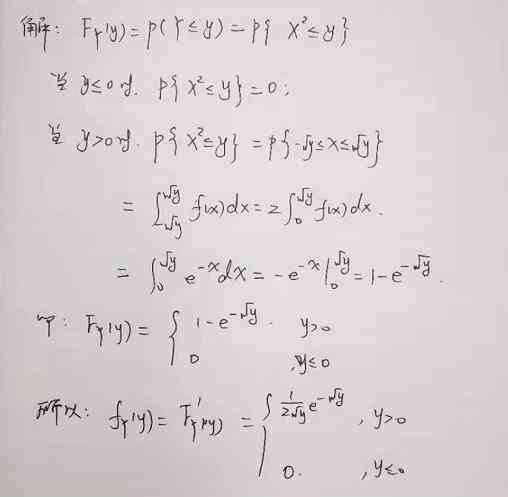 解: F_Y(y) = P(Y≤y) = P{ X²≤y }
当 y≤0时. P{ X²≤y } = 0;
当 y>0时. P{ X²≤y } = P{-√y≤x≤√y}
= ∫_{-√y}^{√y} f(x)dx = 2∫_0^{√y} f(x)dx.
= ∫_0^{√y} e^{-x}dx = -e^{-x}|_0^{√y} = 1-e^{-√y}.
即: F_Y(y) = { 1-e^{-√y}. y>0
0 , y≤0
所以: f_Y(y) = F_Y'(y) = { 1/(2√y) e^{-√y} , y>0
0. , y≤0